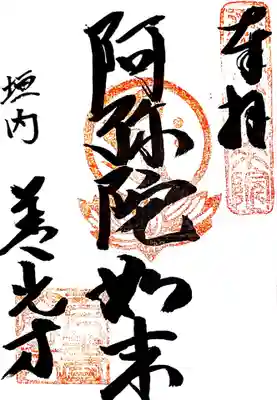 奉拝
阿弥陀如来
垣内
善光寺